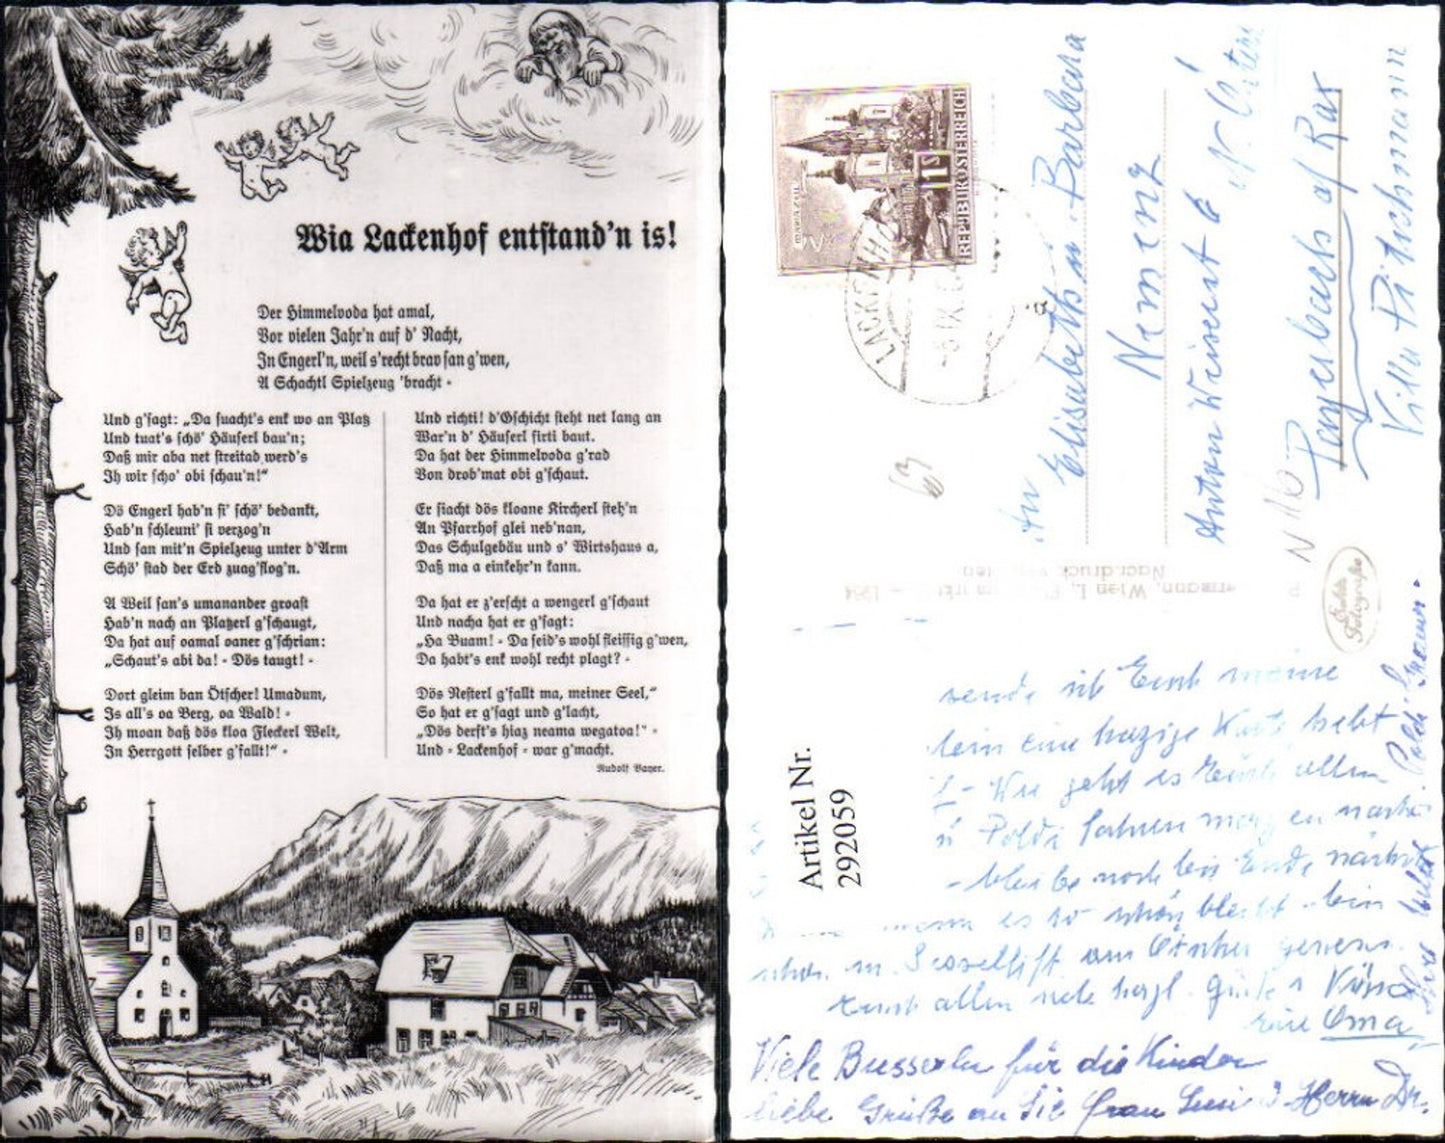 Wia Lackenhof entstand'n is!
Der Himmelvoda hat amal,
Vor vielen Jahr'n auf d' Nacht,
In Engerl'n, weil s'recht brav san g'wen,
A Schachtl Spielzeug 'bracht -
Und g'sagt: „Da suacht's enk wo an Platz
Und tuat's schö' Häuserl bau'n;
Daß mir aba net streitad werd's
Ih wir scho' obi schau'n!“
Dö Engerl hab'n si' schö' bedankt,
Hab'n schleuni' si verzog'n
Und san mit'n Spielzeug unter d'Arm
Schö' stad der Erd zuag'flog'n.
A Weil san's umanander groast
Hab'n nach an Platzerl g'schaugt,
Da hat auf oamal oaner g'schrian:
„Schaut's abi da! - Dös taugt! -
Dort gleim ban Ötscher! Umadum,
Is all's oa Berg, oa Wald! -
Ih moan daß dös kloa Fleckerl Welt,
In Herrgott selber g'fallt!“ -
Und richti! d'Gschicht steht net lang an
War'n d' Häuserl firti baut.
Da hat der Himmelvoda g'rad
Von drob'mat obi g'schaut.
Er siacht dös kloane Kircherl steh'n
An Pfarrhof glei neb'nan,
Das Schulgebäu und s' Wirtshaus a,
Daß ma a einkehr'n kann.
Da hat er z'erscht a wengerl g'schaut
Und nacha hat er g'sagt:
„Ha Buam! - Da seid's wohl fleissig g'wen,
Da habt's enk wohl recht plagt? -
Dös Nesterl g'fallt ma, meiner Seel,“
So hat er g'sagt und g'lacht,
„Dös derft's hiaz neama wegatoa!“ -
Und - Lackenhof - war g'macht.
Rudolf Bayer.
REPUBLIK ÖSTERREICH
1 S
MARIAZELL
An
Elisabeth u. Barbara
Nemenz
Anton Wiesert 6
Payerbach a/ Rax
Villa Pitschmann
N 116
63
Echte Fotografie
Wien I,
Artikel Nr.
292059
sende ich Euch meine
Wie geht es Euch allen
Poldi fahren morgen
bleibe noch bis Ende
es so schön bleibt bin
schon m. Sessellift am Ötscher gewesen.
Euch allen viele herzl. Grüße u Küsse
Eure Oma
Viele Busserln für die Kinder
liebe Grüße an Sie Frau Susi u Herrn Dr.